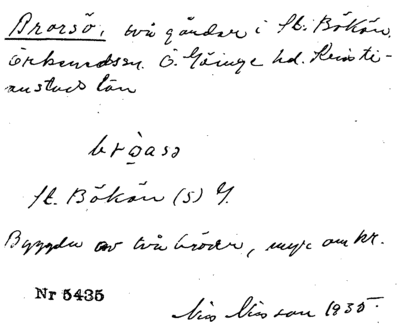 Brorsö, två gårdar i St. Bökön,
Örkeneds sn. Ö. Göinge hd. Kristi-
anstads län
bròasə
St. Bökön (S) G.
Byggda av två bröder, myc om kr.
Nr 5435
Nils Nilsson 1935